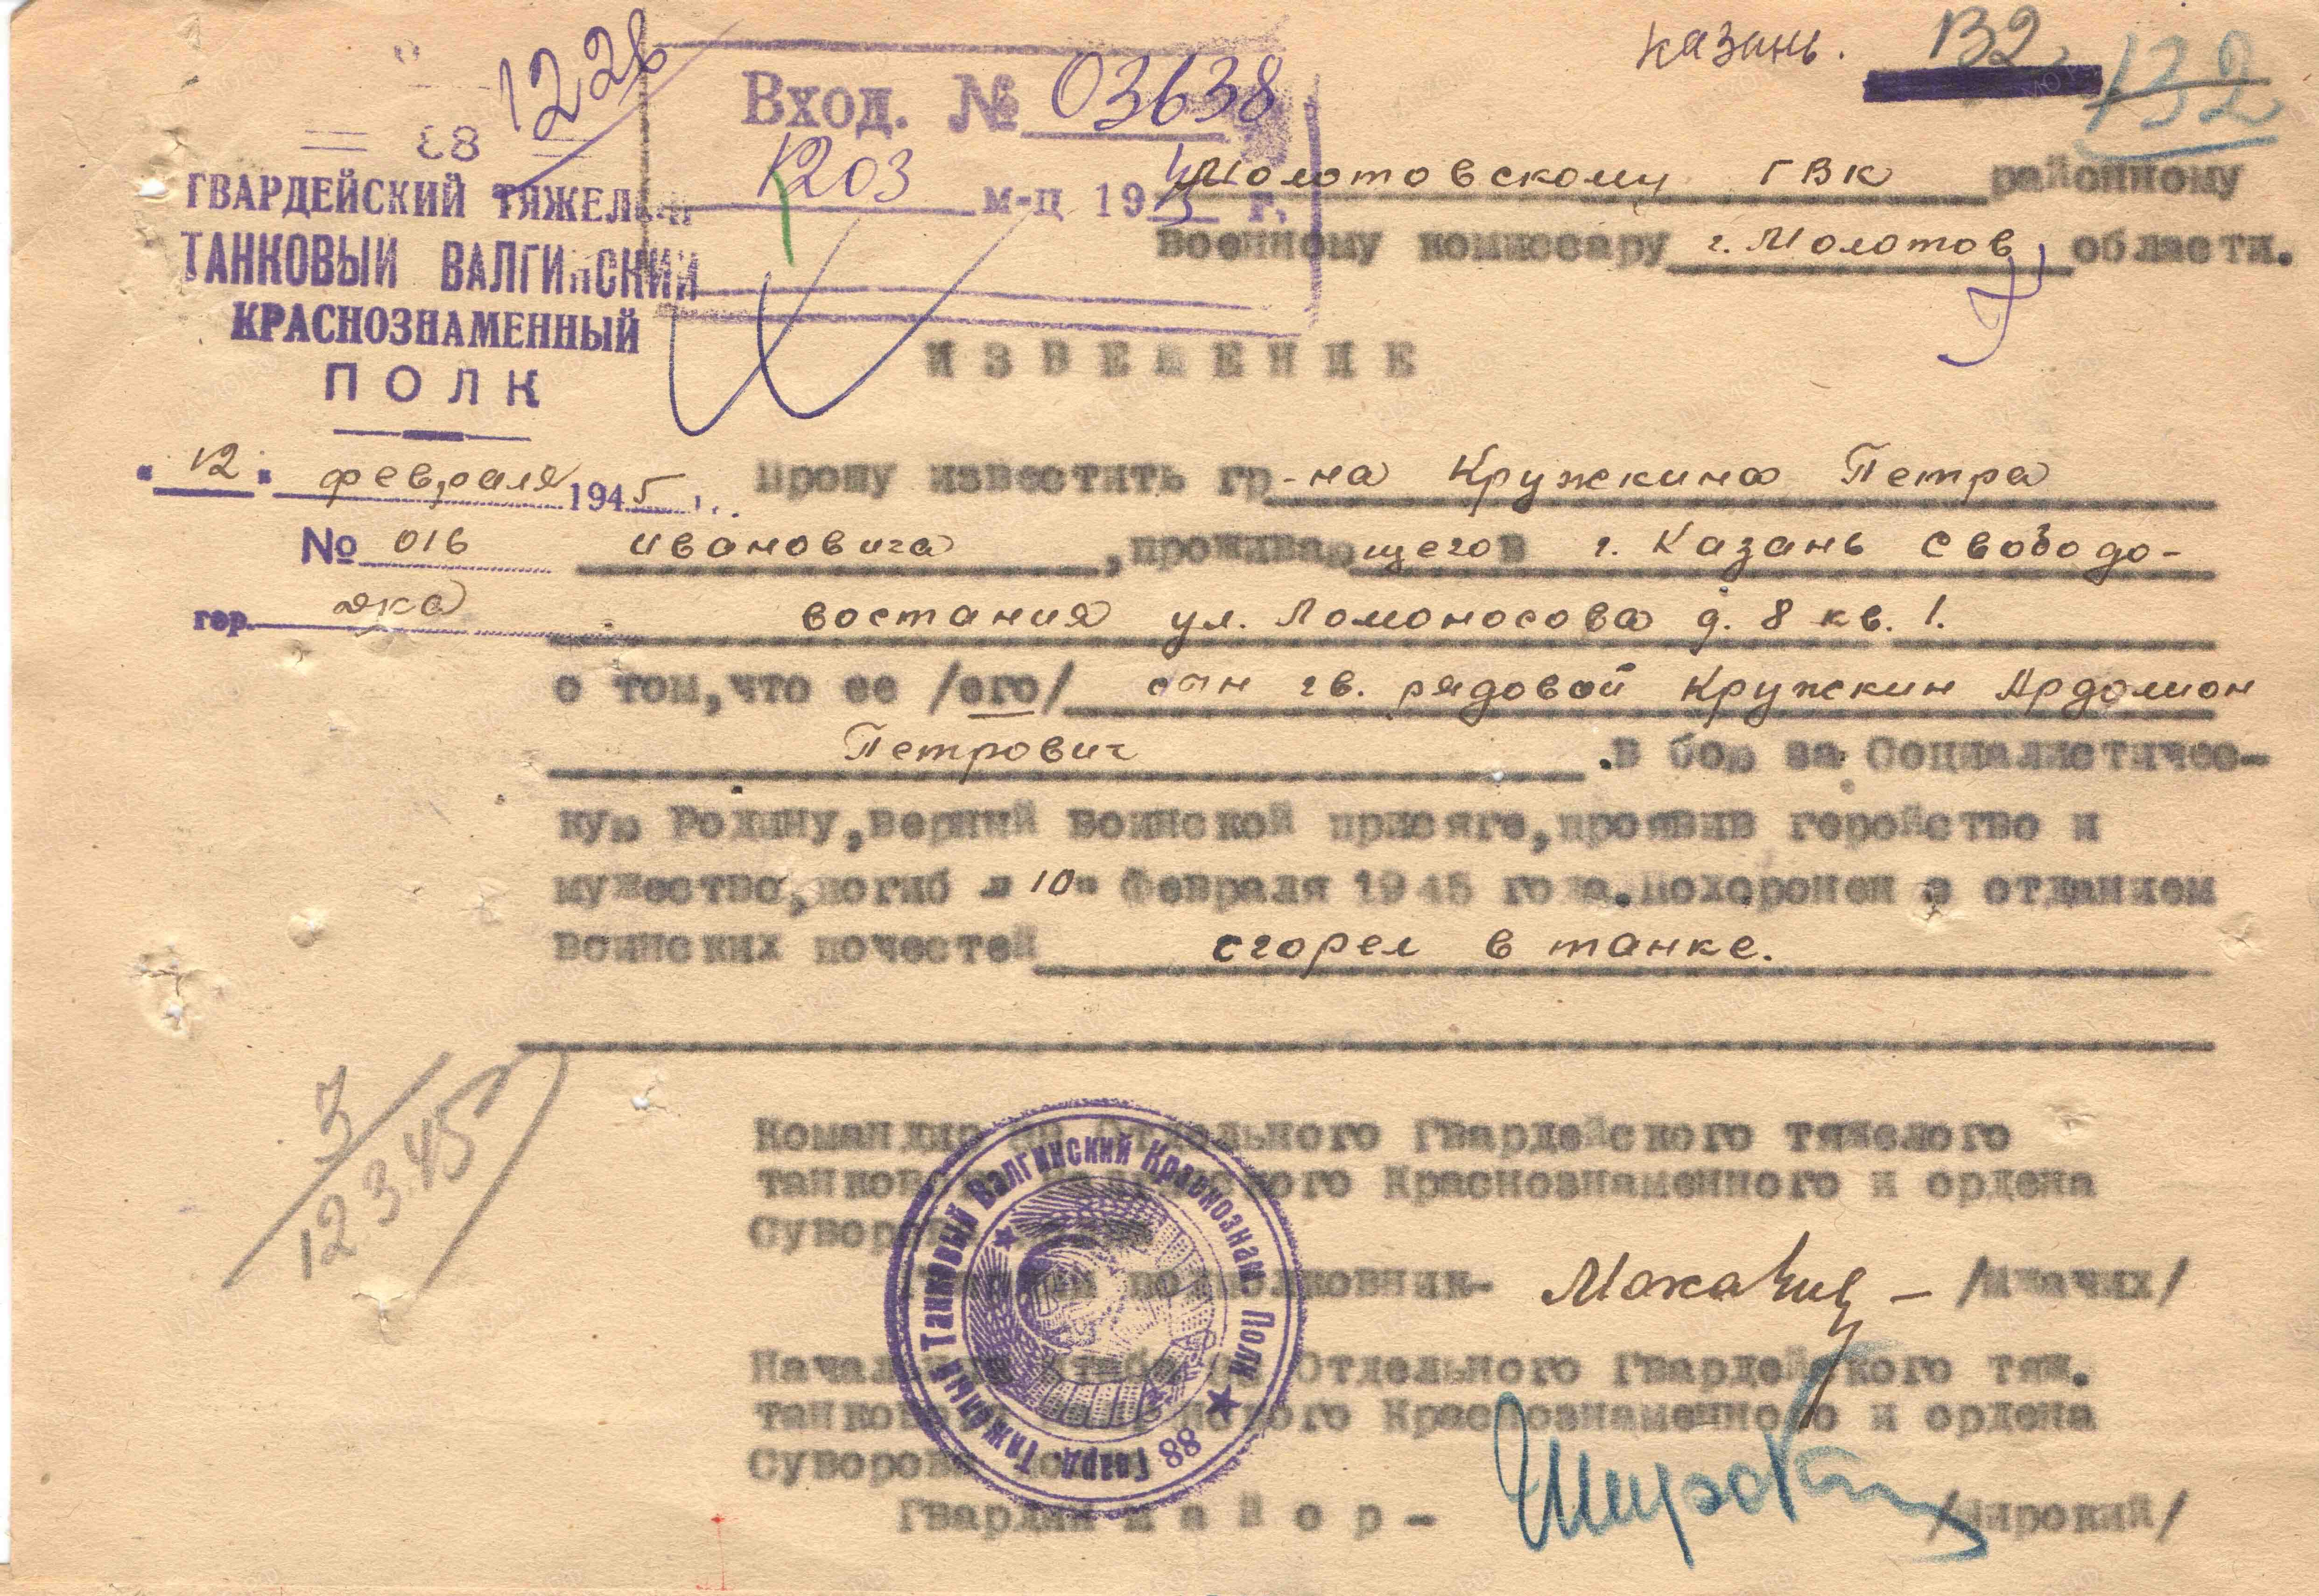 Казань. 132 132
1226
Вход. № 03638
1203 м-ц 1945 г.
88
ГВАРДЕЙСКИЙ ТЯЖЕЛЫЙ
ТАНКОВЫЙ ВАЛГИНСКИЙ
КРАСНОЗНАМЕННЫЙ
ПОЛК
Молотовскому ГВК районному
военному комиссару г. Молотов области.
ИЗВЕЩЕНИЕ
"12" февраля 1945 г.
№ 016
гор.
Прошу известить гр-на Кружкина Петра
Ивановича, проживающего в г. Казань Свободо-
востания ул. Ломоносова д. 8 кв. 1.
о том, что ее /его/ сын гв. рядовой Кружкин Ардомион
Петрович. в бою за Социалистичес-
кую Родину, верный воинской присяге, проявив геройство и
мужество, погиб "10" февраля 1945 года. Похоронен с отданием
воинских почестей сгорел в танке.
3
12.3.45
Командир 88 Отдельного Гвардейского тяжелого
танкового Валгинского Краснознаменного и ордена
Суворова полка
Гвардии подполковник- /Мжачих/
Начальник штаба 88 Отдельного Гвардейского тяж.
танкового Валгинского Краснознаменного и ордена
Суворова полка
Гвардии майор- Широкий /Широкий/
88 Гвард. Тяжелый Танковый Валгинский Краснознам. Полк